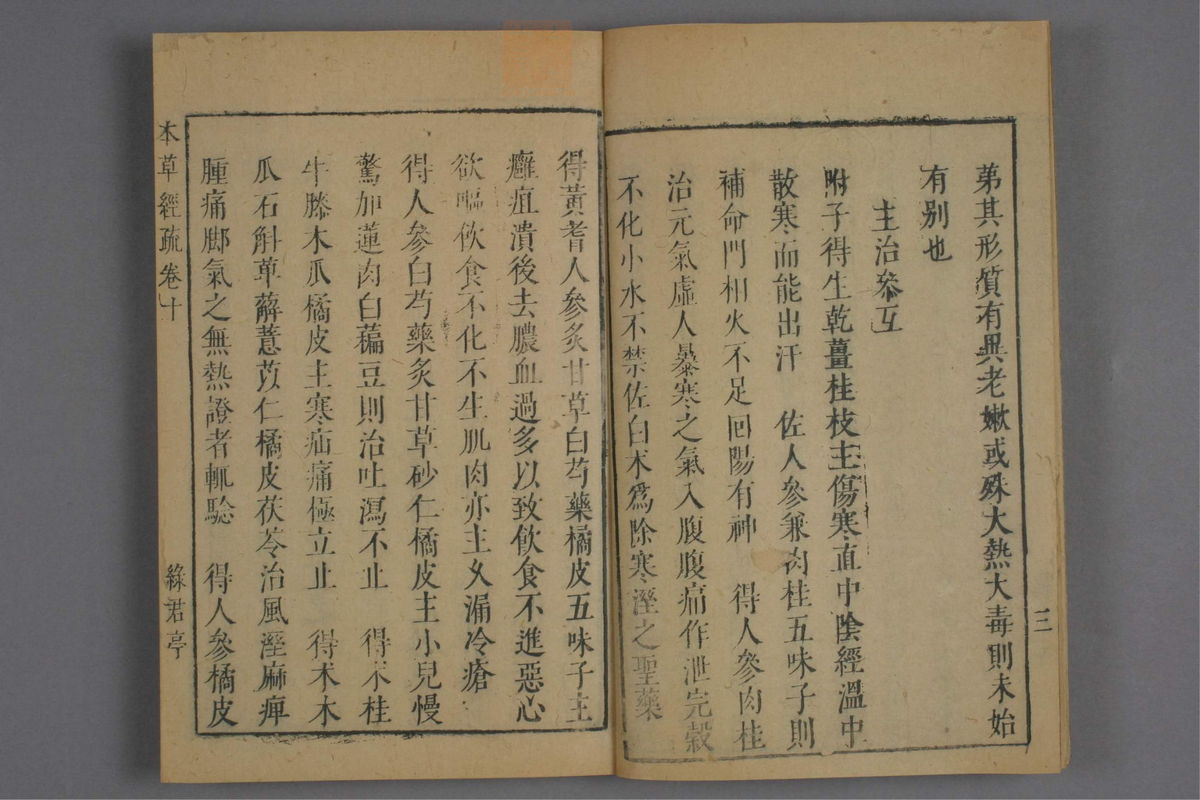 三
弟其形質有異老嫩或殊大熱大毒則未始
有别也
主治參互
附子得生乾薑桂枝主傷寒直中陰經溫中
散寒而能出汗　佐人參兼肉桂五味子則
補命門相火不足回陽有神　得人參肉桂
治元氣虛人暴寒之氣入腹腹痛作泄完穀
不化小水不禁佐白术爲除寒溼之聖藥
得黃耆人參炙甘草白芍藥橘皮五味子主
癰疽潰後去膿血過多以致飲食不進惡心
欲嘔飲食不化不生肌肉亦主久漏冷瘡
得人參白芍藥炙甘草砂仁橘皮主小兒慢
驚加蓮肉白藊豆則治吐瀉不止　得木桂
牛膝木瓜橘皮主寒疝痛極立止　得术木
瓜石斛萆薢薏苡仁橘皮茯苓治風溼麻痺
腫痛脚氣之無熱證者輒騐　得人參橘皮
本草經疏卷十
綠君亭